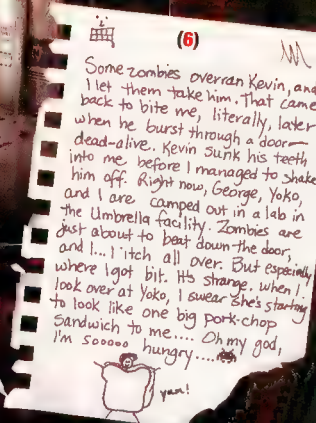 (6)
Some zombies overran Kevin, and
I let them take him. That came
back to bite me, literally, later
when he burst through a door—
dead-alive. Kevin sunk his teeth
into me before I managed to shake
him off. Right now, George, Yoko,
and I are camped out in a lab in
the Umbrella facility. Zombies are
just about to beat down the door,
and I... I itch all over. But especially
where I got bit. It's strange. When I
look over at Yoko, I swear she's starting
to look like one big pork-chop
sandwich to me.... Oh my god,
I'm sooooo hungry....
yum!